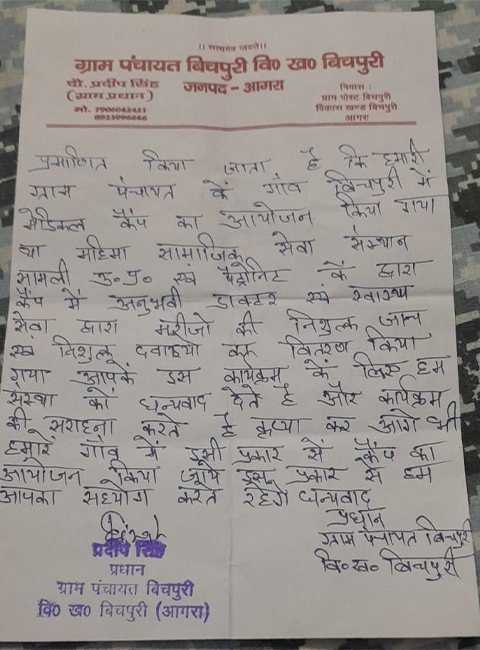 ।। सत्यमेव जयते।।
ग्राम पंचायत बिचपुरी वि० ख० बिचपुरी
चौ. प्रदीप सिंह
(ग्राम प्रधान)
मो. 7906042421
8923096666
जनपद - आगरा
निवास :
ग्राम पोस्ट बिचपुरी
विकास खण्ड बिचपुरी
आगरा
प्रमाणित किया जाता है कि हमारी
ग्राम पंचायत के गाँव बिचपुरी में
मेडिकल कैंप का आयोजन किया गया
था महिमा सामाजिक सेवा संस्थान
शामली उ.प्र. एवं के द्वारा
कैंप में अनुभवी डाक्टर एवं स्वास्थ्य
सेवा द्वारा मरीजो की निशुल्क जाच
एवं निशुल्क दवाइयो का वितरण किया
गया आपके इस कार्यक्रम के लिए हम
संस्था को धन्यवाद देते है और कार्यक्रम
की सराहना करते है कृप्या कर आगे भी
हमारे गाँव में इसी प्रकार से कैंप का
आयोजन किया जाये इस प्रकार से हम
आपका सहयोग करते रहेगे धन्यवाद
प्रधान
ग्राम पंचायत बिचपुरी
वि०ख० बिचपुरी
प्रदीप सिंह
प्रधान
ग्राम पंचायत बिचपुरी
वि० ख० बिचपुरी (आगरा)